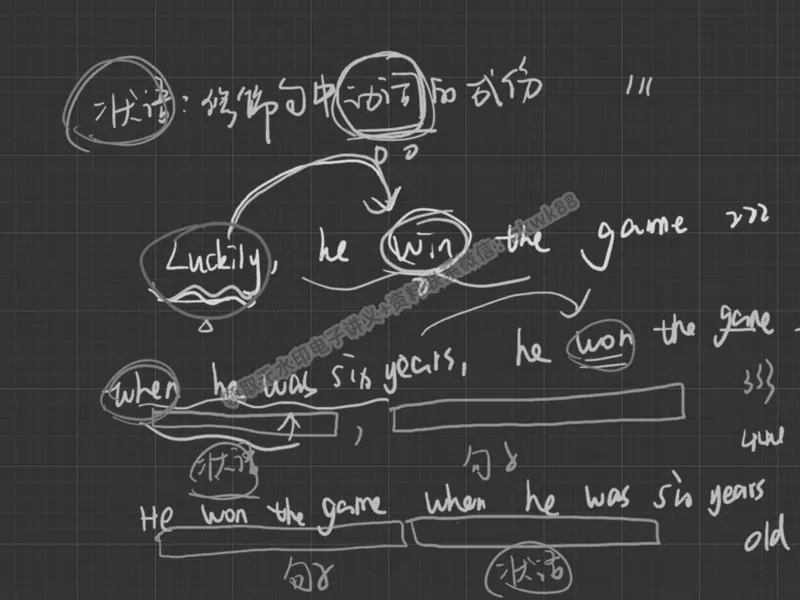 状语：修饰句中动词的成份 111
Luckily, he win the game 222
he won the game
when he was six years, 333
状语 句子 444
He won the game when he was six years old
句子 状语